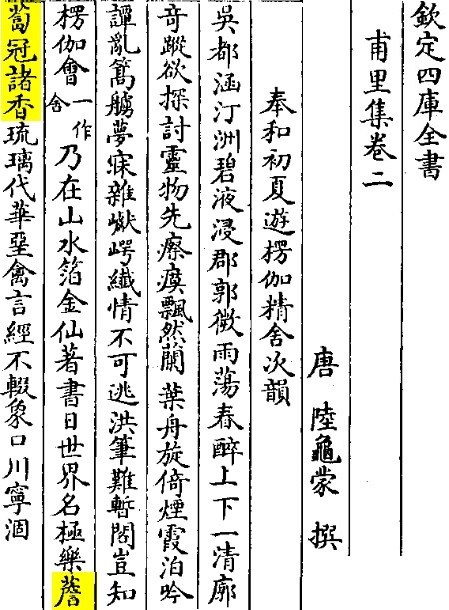 欽定四庫全書
甫里集卷二
唐 陸龜蒙 撰
奉和初夏遊楞伽精舍次韻
吳都涵汀洲碧液浸郡郭微雨蕩春醉上下一清廓
奇蹤欲探討靈物先瘵瘼飄然蘭葉舟旋倚煙霞泊吟
譚亂篙艣夢寐雜巘崿纖情不可逃洪筆難暫閣豈知
楞伽會一作舍乃在山水箔金仙著書日世界名極樂薝
蔔冠諸香琉璃代華堊禽言經不輟象口川寧涸